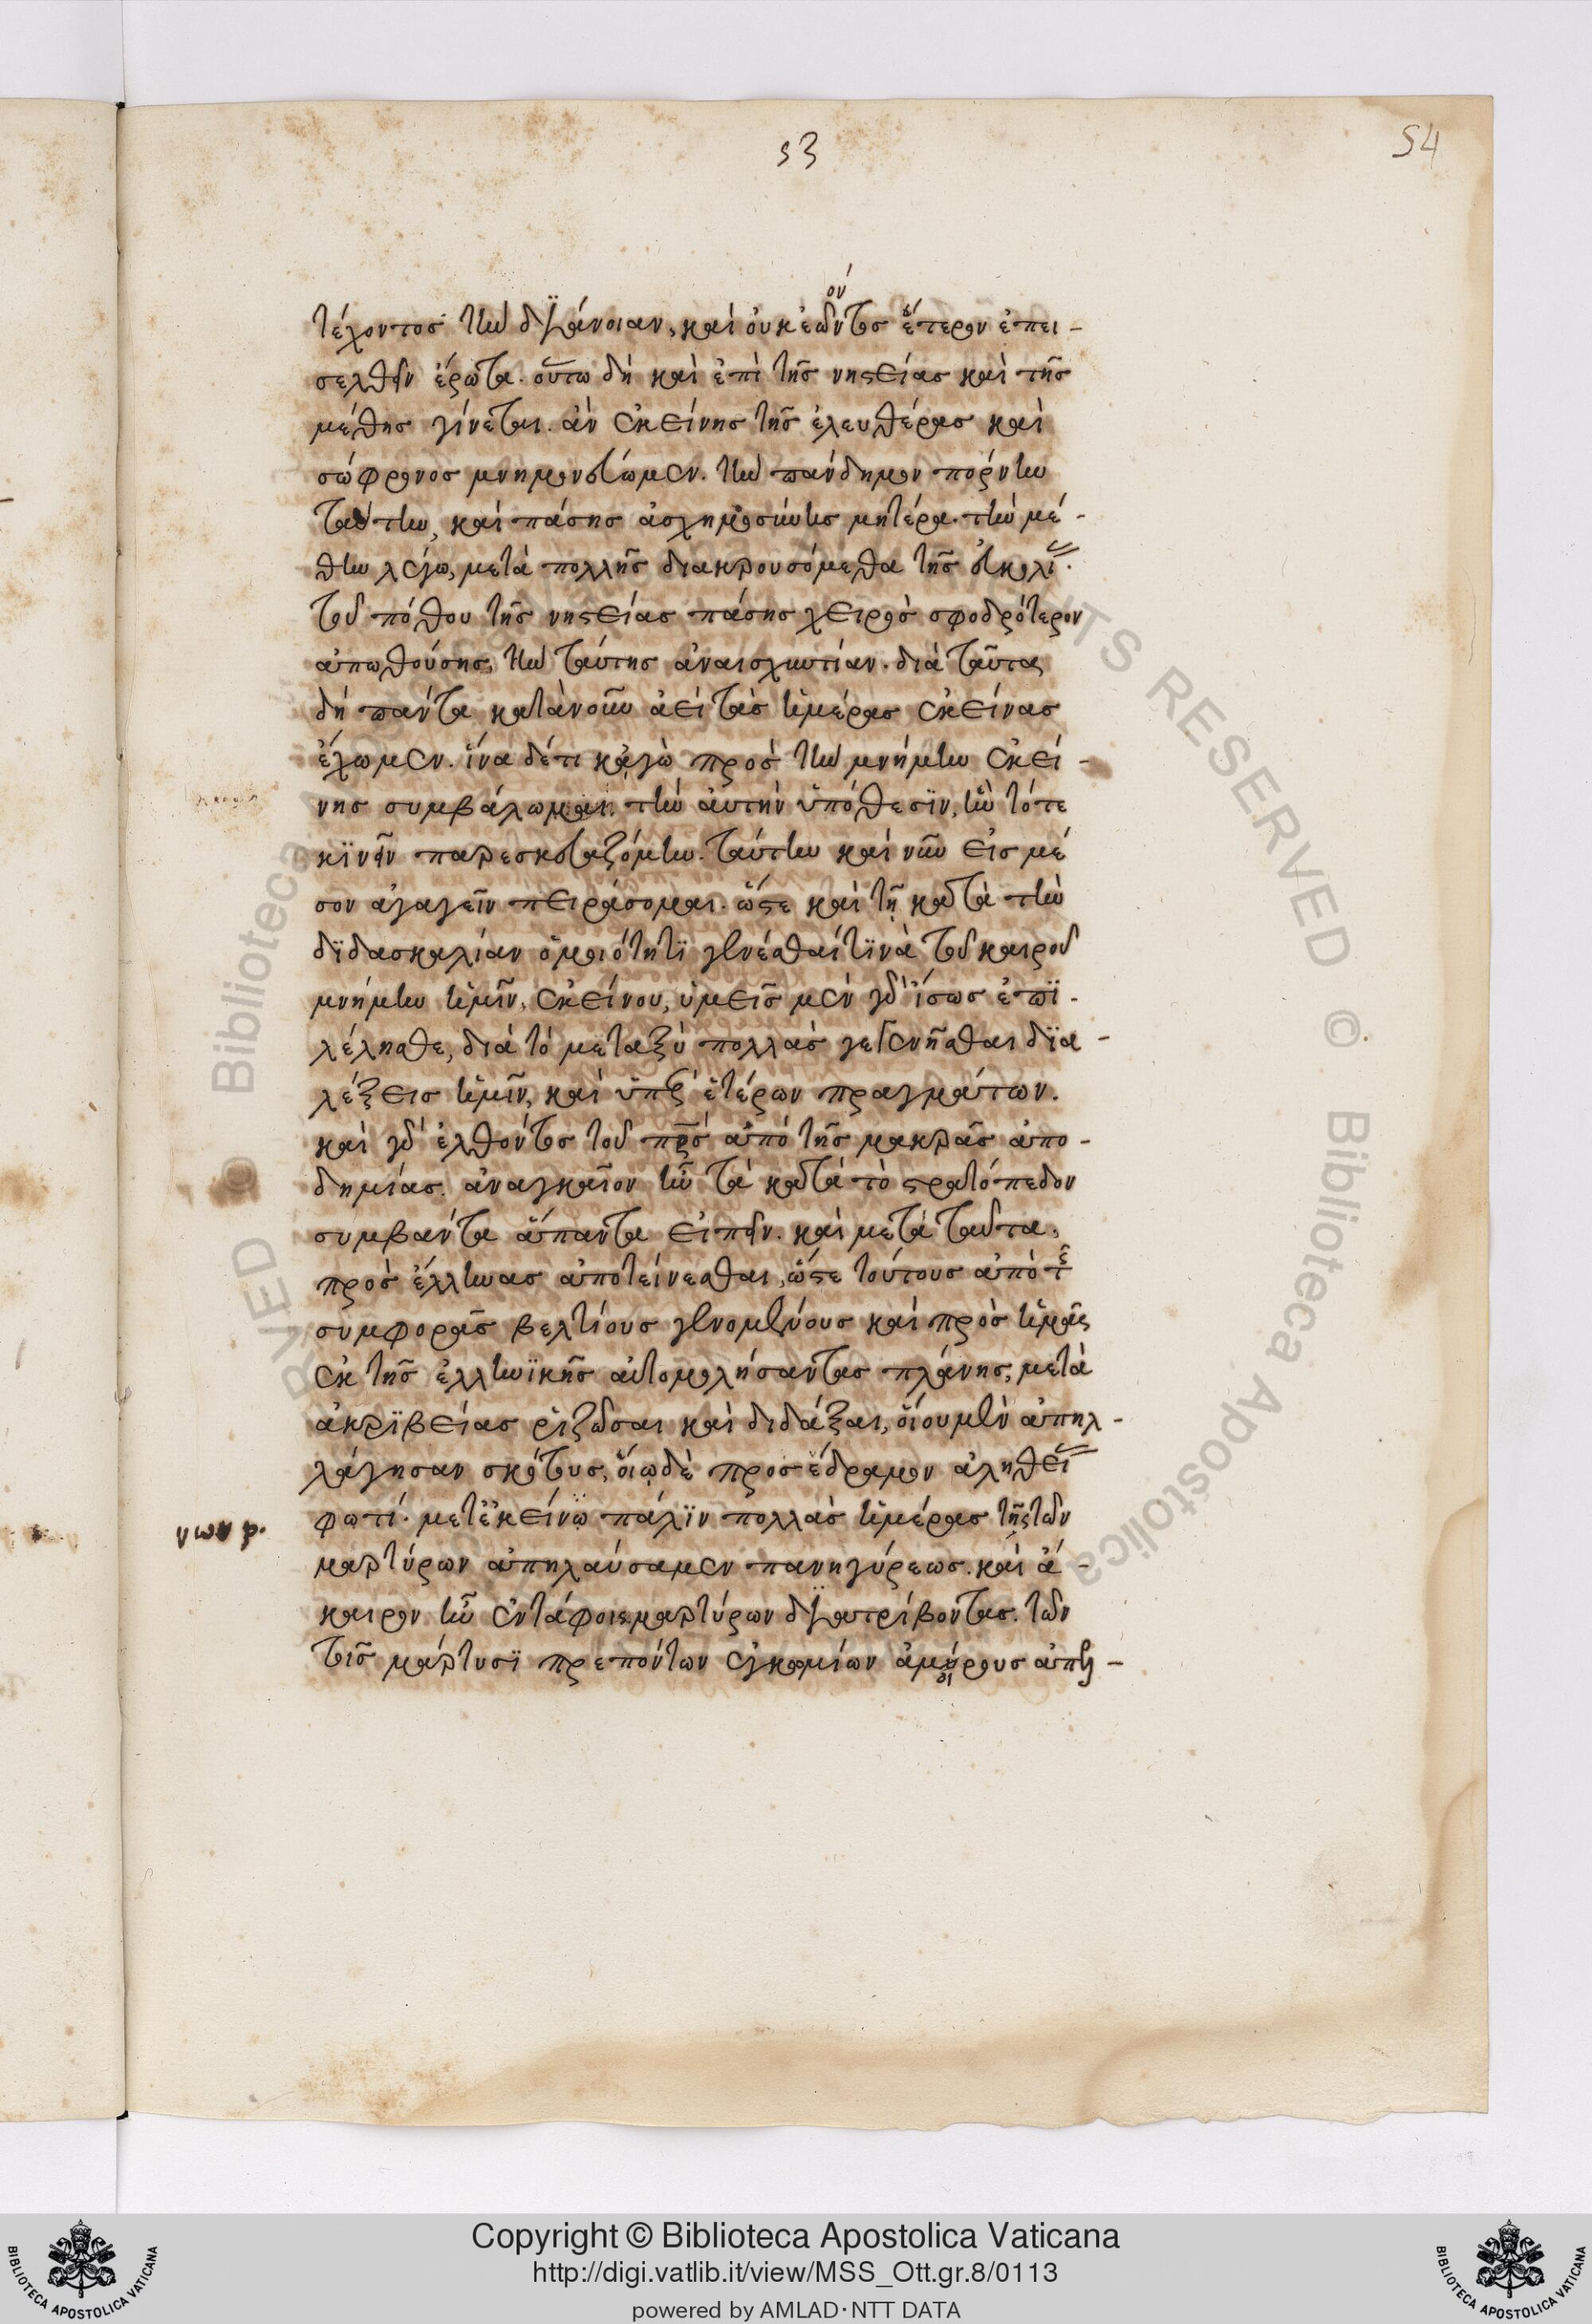 53
54
τέχοντος τὴν διάνοιαν, καὶ οὐκ ἐῶντος ἕτερον ἐπει-
σελθεῖν ἔρωτα. οὕτω δὴ καὶ ἐπὶ τῆς νηστείας καὶ τῆς
μέθης γίνεται. ἂν ἐκείνης τῆς ἐλευθέρας καὶ
σώφρονος μνημονεύωμεν. τὴν πάνδημον πόρνην
ταύτην, καὶ πάσης ἀσχημοσύνης μητέρα. τὴν μέ-
θην λέγω, μετὰ πολλῆς διακρουσόμεθα τῆς εὐκολί
τοῦ πόθου τῆς νηστείας πάσης χειρὸς σφοδρότερον
ἀπωθούσης, τὴν ταύτης ἀναισχυντίαν. διὰ ταῦτα
δὴ πάντα κατὰ νοῦν ἀεὶ τὰς ἡμέρας ἐκείνας
ἔχωμεν. ἵνα δέ τι κἀγὼ πρὸς τὴν μνήμην ἐκεί-
νης συμβάλωμαι. τὴν αὐτὴν ὑπόθεσϊν, ἣν τότε
κϊνεῖν παρεσκευαζόμην. ταύτην καὶ νῦν εἰς μέ
σον ἀγαγεῖν πειράσομαι. ὥστε καὶ τῇ κατὰ τὴν
δϊδασκαλίαν ὁμοιότητϊ γενέσθαι τϊνὰ τοῦ καιροῦ
μνήμην ἡμῖν, ἐκείνου, ὑμεῖς μὲν γὰρ ἴσως ἐπϊ-
λέλησθε, διὰ τὸ μεταξὺ πολλὰς γεγενῆσθαι δϊα-
λέξεις ἡμῖν, καὶ ὑπὲρ ἑτέρων πραγμάτων.
καὶ γὰρ ἐλθόντος τοῦ πρς ἀπὸ τῆς μακρᾶς ἀπο-
δημίας. ἀναγκαῖον ἦν τὰ κατὰ τὸ στρατόπεδον
συμβάντα ἅπαντα εἰπεῖν. καὶ μετὰ ταῦτα,
πρὸς ἕλληνας ἀποτείνεσθαι, ὥστε τούτους ἀπὸ τῆς
συμφορᾶς βελτίους γενομένους καὶ πρὸς ἡμᾶς
ἐκ τῆς ἑλληνϊκῆς αὐτομολήσαντας πλάνης, μετὰ
ἀκρϊβείας ῥιζῶσαι καὶ διδάξαι, οἵου μὲν ἀπηλ-
λάγησαν σκότους, οἵῳ δὲ προσέδραμον ἀληθεί
φωτί. μετ' ἐκείνῳ πάλϊν πολλὰς ἡμέρας τῆς τῶν
μαρτύρων ἀπηλαύσαμεν πανηγύρεως. καὶ ἄ-
καιρον ἦν ἐν τάφοις μαρτύρων διατρίβοντας. τῶν
τοῖς μάρτυσϊ πρεπόντων ἐγκωμίων ἀμοίρους ἀπελ-
Copyright © Biblioteca Apostolica Vaticana
http://digi.vatlib.it/view/MSS_Ott.gr.8/0113
powered by AMLAD·NTT DATA